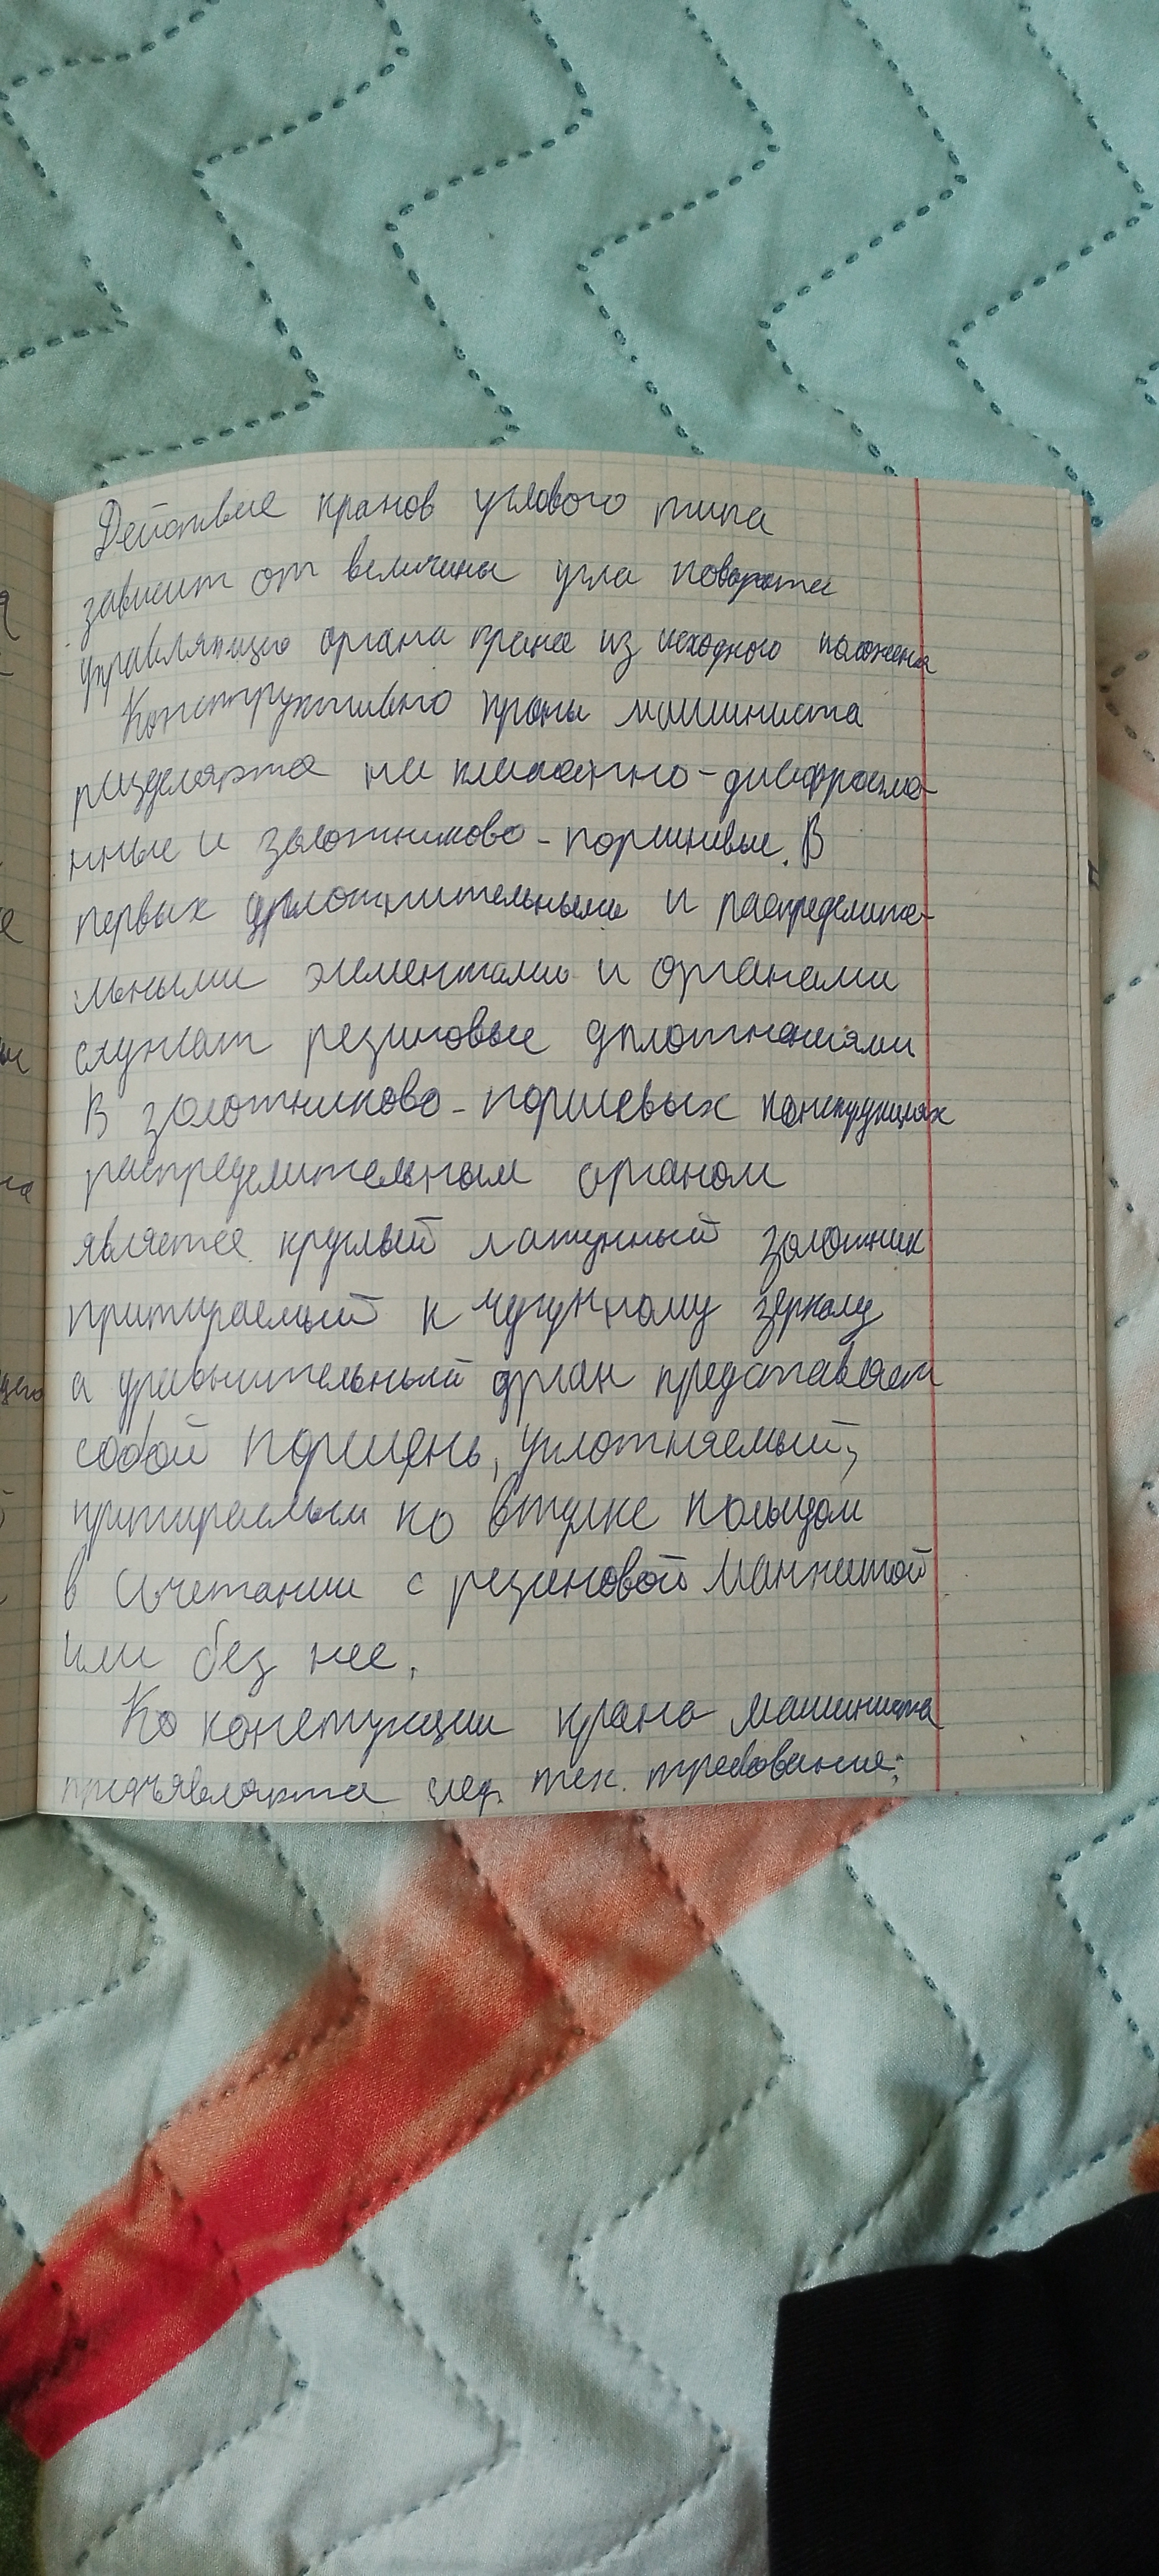 Действие кранов углового типа
зависит от величины угла поворота
управляющего органа крана из исходного положения
Конструктивно краны машиниста
разделяются на клапанно-диафрагма-
нные и золотниково-поршневые. В
первых уплотнительными и распределите-
льными элементами и органами
служат резиновые уплотнениями
В золотниково-поршевых конструкциях
распределительным органом
является круглый латунный золотник
притираемый к чугунному зеркалу
а уравнительный орган представляет
собой поршень, уплотняемый,
притираемым ко втулке кольцом
в сочетании с резиновой манжетой
или без нее.
Ко констукции крана машиниста
предъявляются след. тех. требования: